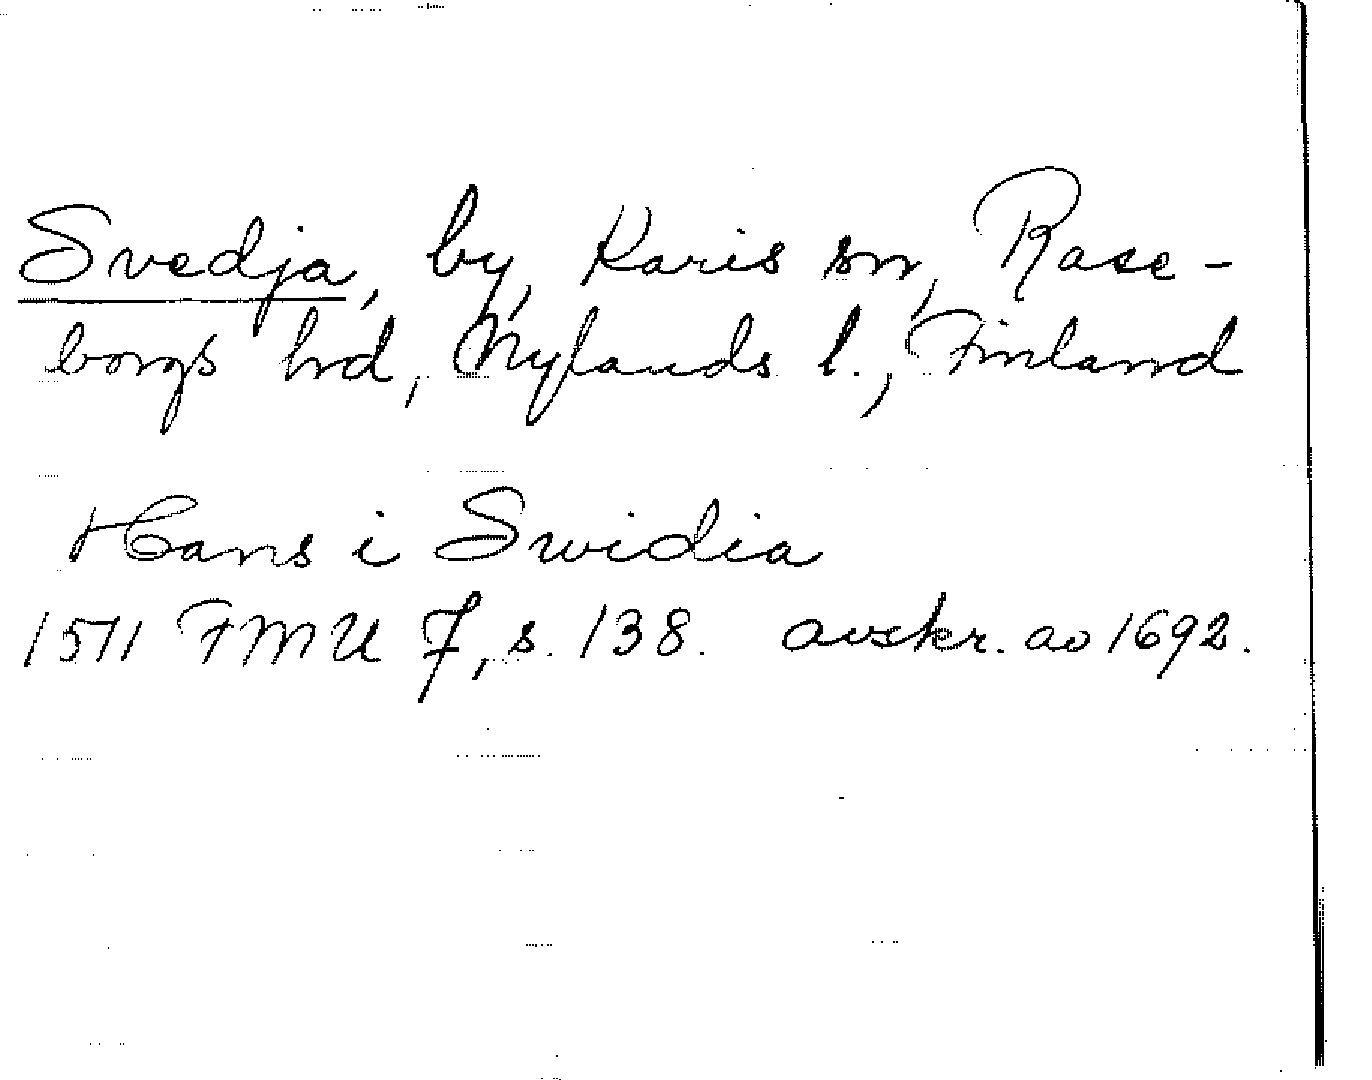 Svedja, by, Karis sn, Rase-
borgs hd, Nylands l., Finland
Hans i Swidia
1511 FMU 7, s. 138. avskr. ao 1692.